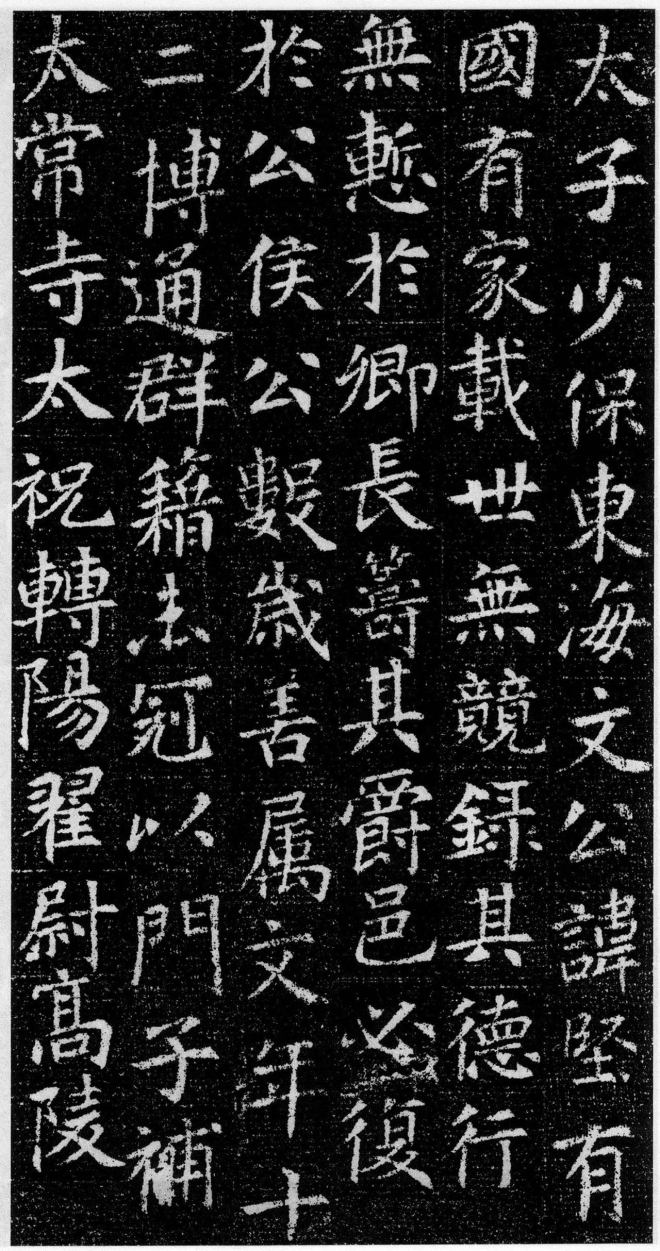 太子少保東海文公諱堅有
國有家載世無競録其德行
無慙於卿長籌其爵邑必復
於公侯公數歲善属文年十
二博通群籍未冠以門子補
太常寺太祝轉陽翟尉高陵